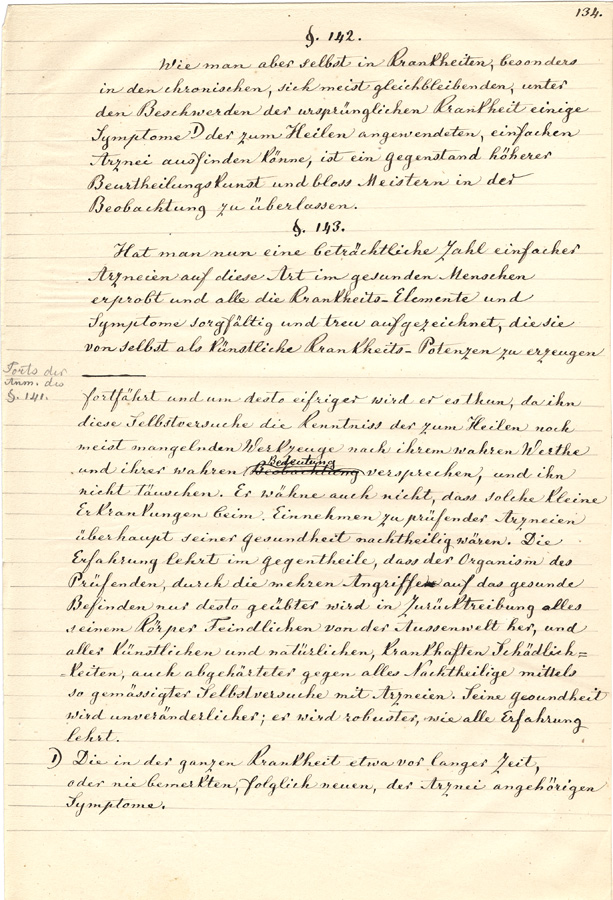 134.
§. 142.
Wie man aber selbst in Krankheiten, besonders
in den chronischen, sich meist gleichbleibenden, unter
den Beschwerden der ursprünglichen Krankheit einige
Symptome 1) der zum Heilen angewendeten, einfachen
Arznei ausfinden könne, ist ein Gegenstand höherer
Beurtheilungskunst und bloss Meistern in der
Beobachtung zu überlassen.
§. 143.
Hat man nun eine beträchtliche Zahl einfacher
Arzneien auf diese Art im gesunden Menschen
erprobt und alle die Krankheits-Elemente und
Symptome sorgfältig und treu aufgezeichnet, die sie
von selbst als künstliche Krankheits-Potenzen zu erzeugen
Forts der
Anm. des
§. 141.
fortfährt und um desto eifriger wird er es thun, da ihn
diese Selbstversuche die Kenntniss der zum Heilen noch
meist mangelnden Werkzeuge nach ihrem wahren Werthe
Bedeutung
und ihrer wahren Beobachtung versprechen, und ihn
nicht täuschen. Er wähne auch nicht, dass solche kleine
Erkrankungen beim. Einnehmen zu prüfender Arzneien
überhaupt seiner Gesundheit nachtheilig wären. Die
Erfahrung lehrt im Gegentheile, dass der Organism des
Prüfenden, durch die mehren Angriffe auf das gesunde
Befinden nur desto geübter wird in Zurücktreibung alles
seinem Körper Feindlichen von der Aussenwelt her, und
aller künstlichen und natürlichen, krankhaften Schädlich=
=keiten, auch abgehärteter gegen alles Nachtheilige mittels
so gemässigter Selbstversuche mit Arzneien. Seine Gesundheit
wird unveränderlicher; er wird robuster, wie alle Erfahrung
lehrt.
1) Die in der ganzen Krankheit etwa vor langer Zeit,
oder nie bemerkten, folglich neuen, der Arznei angehörigen
Symptome.